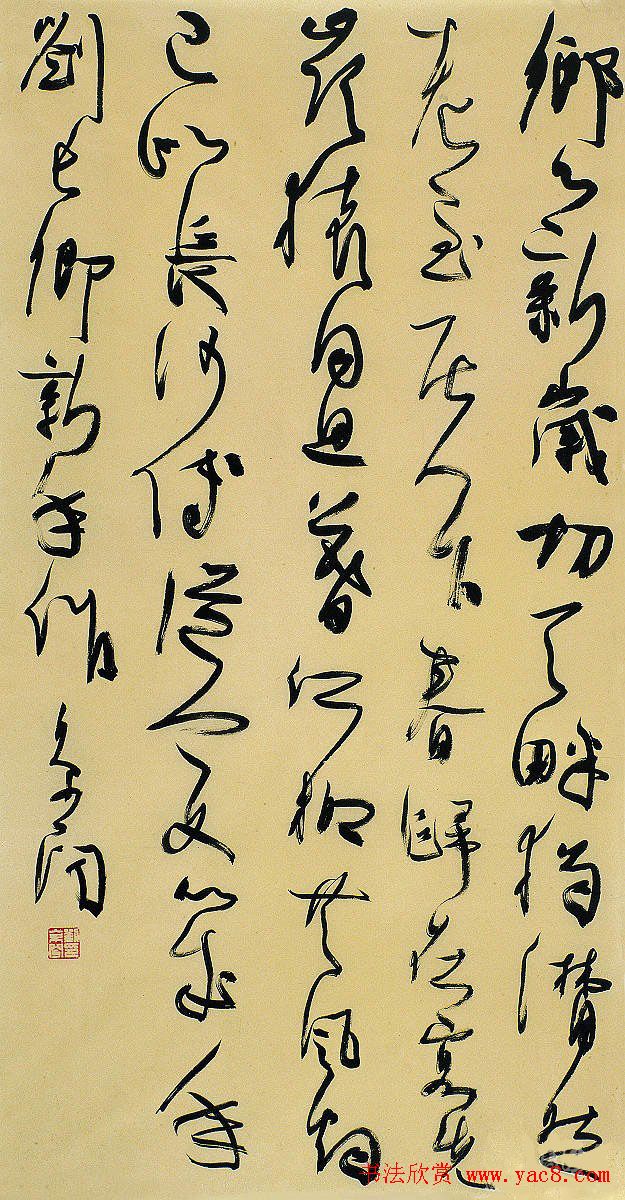 鄉心新歲切天畔獨潸然
老至居人下春歸在客先
嶺猿同旦暮江柳共風烟
已似長沙傅從今又幾年
劉長卿新年作
书法欣赏 www.yac8.com